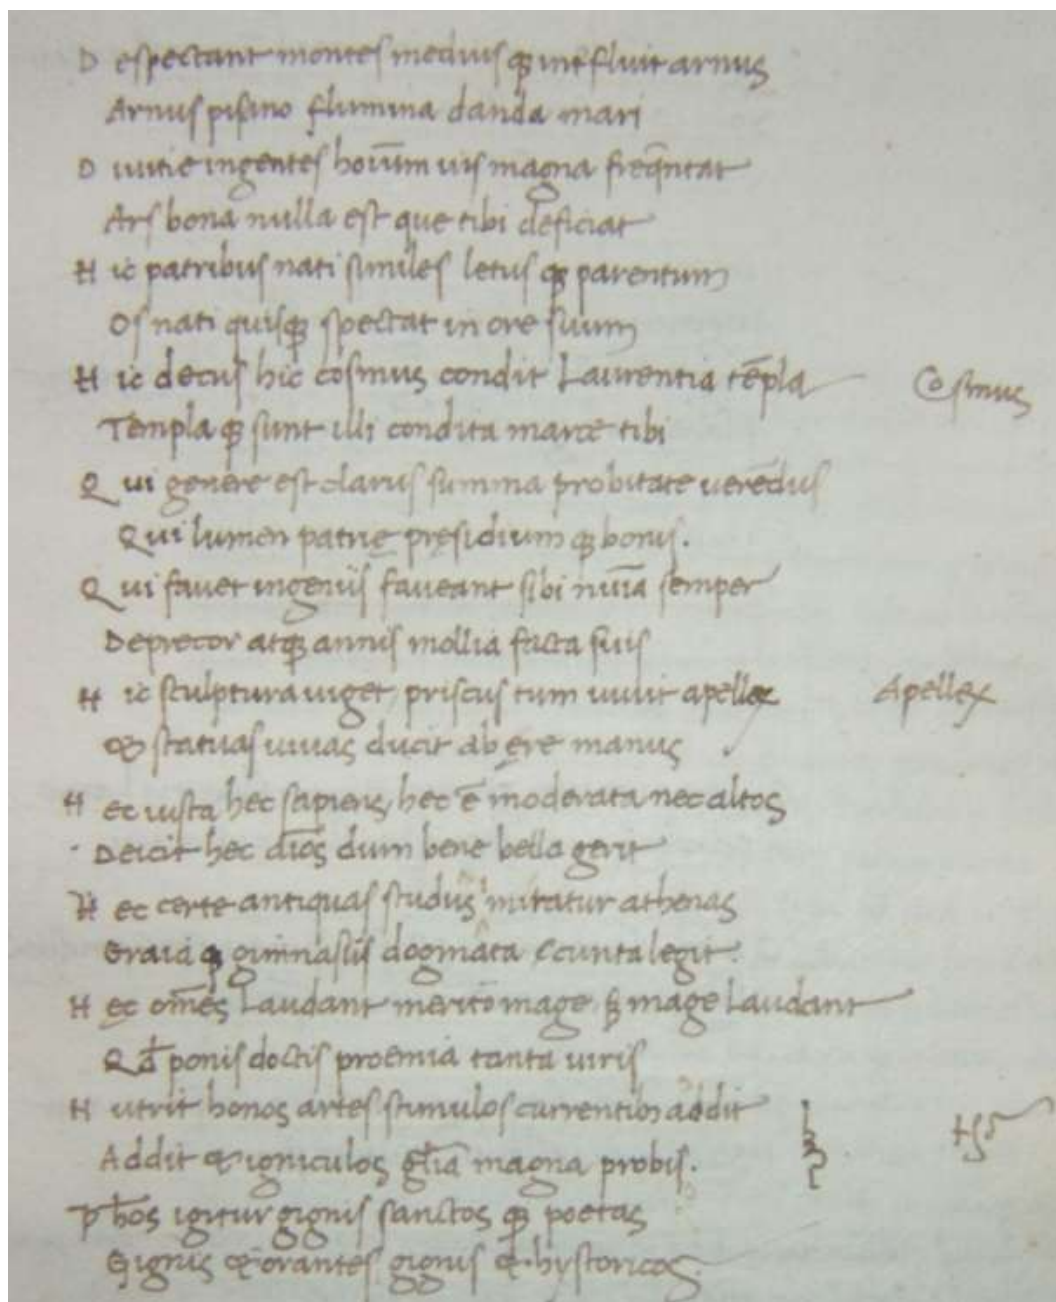 D espectant montes mediusꝙ int̄fluit arnus
Arnus pisano flumina danda mari
D iuitie ingentes hoīum uis magna freq̄ntat
Ars bona nulla est que tibi deficiat
H ic patribus nati similes letusꝙ parentum
Os nati quisꝙ spectat in ore suum
H ic decus hic cosmus condit Laurentia tēpla Cosmus
Templaꝙ sunt illi condita marce tibi
Q ui genere est clarus summa probitate uerēdus
Qui lumen patrię pręsidiumꝙ bonis.
Q ui fauet ingeniis faueant sibi nūīa semper
Deprecor atꝙ annis mollia facta suis
H ic sculptura uiget, priscus tum uiuit apellex Apellex
& statuas uiuas ducit ab ęre manus
H ec iusta hec sapiens, hec ē moderata nec altos
Deicit hec dīos dum bene bella gerit
H ec certe antiquas studiis imitatur athenas
Graiaꝙ gimnasiis dogmata cuncta legit.
H ęc om̄es Laudant merito mage, mage Laudant
ponis doctis proemia tanta uiris
N utrit honos artes stimulos currentibꝫ addit
Addit & igniculos gl̄ia magna probis.
Ph̄os igitur gignis sanctosꝙ poetas
Gignis & orantes gignis & hystoricos.